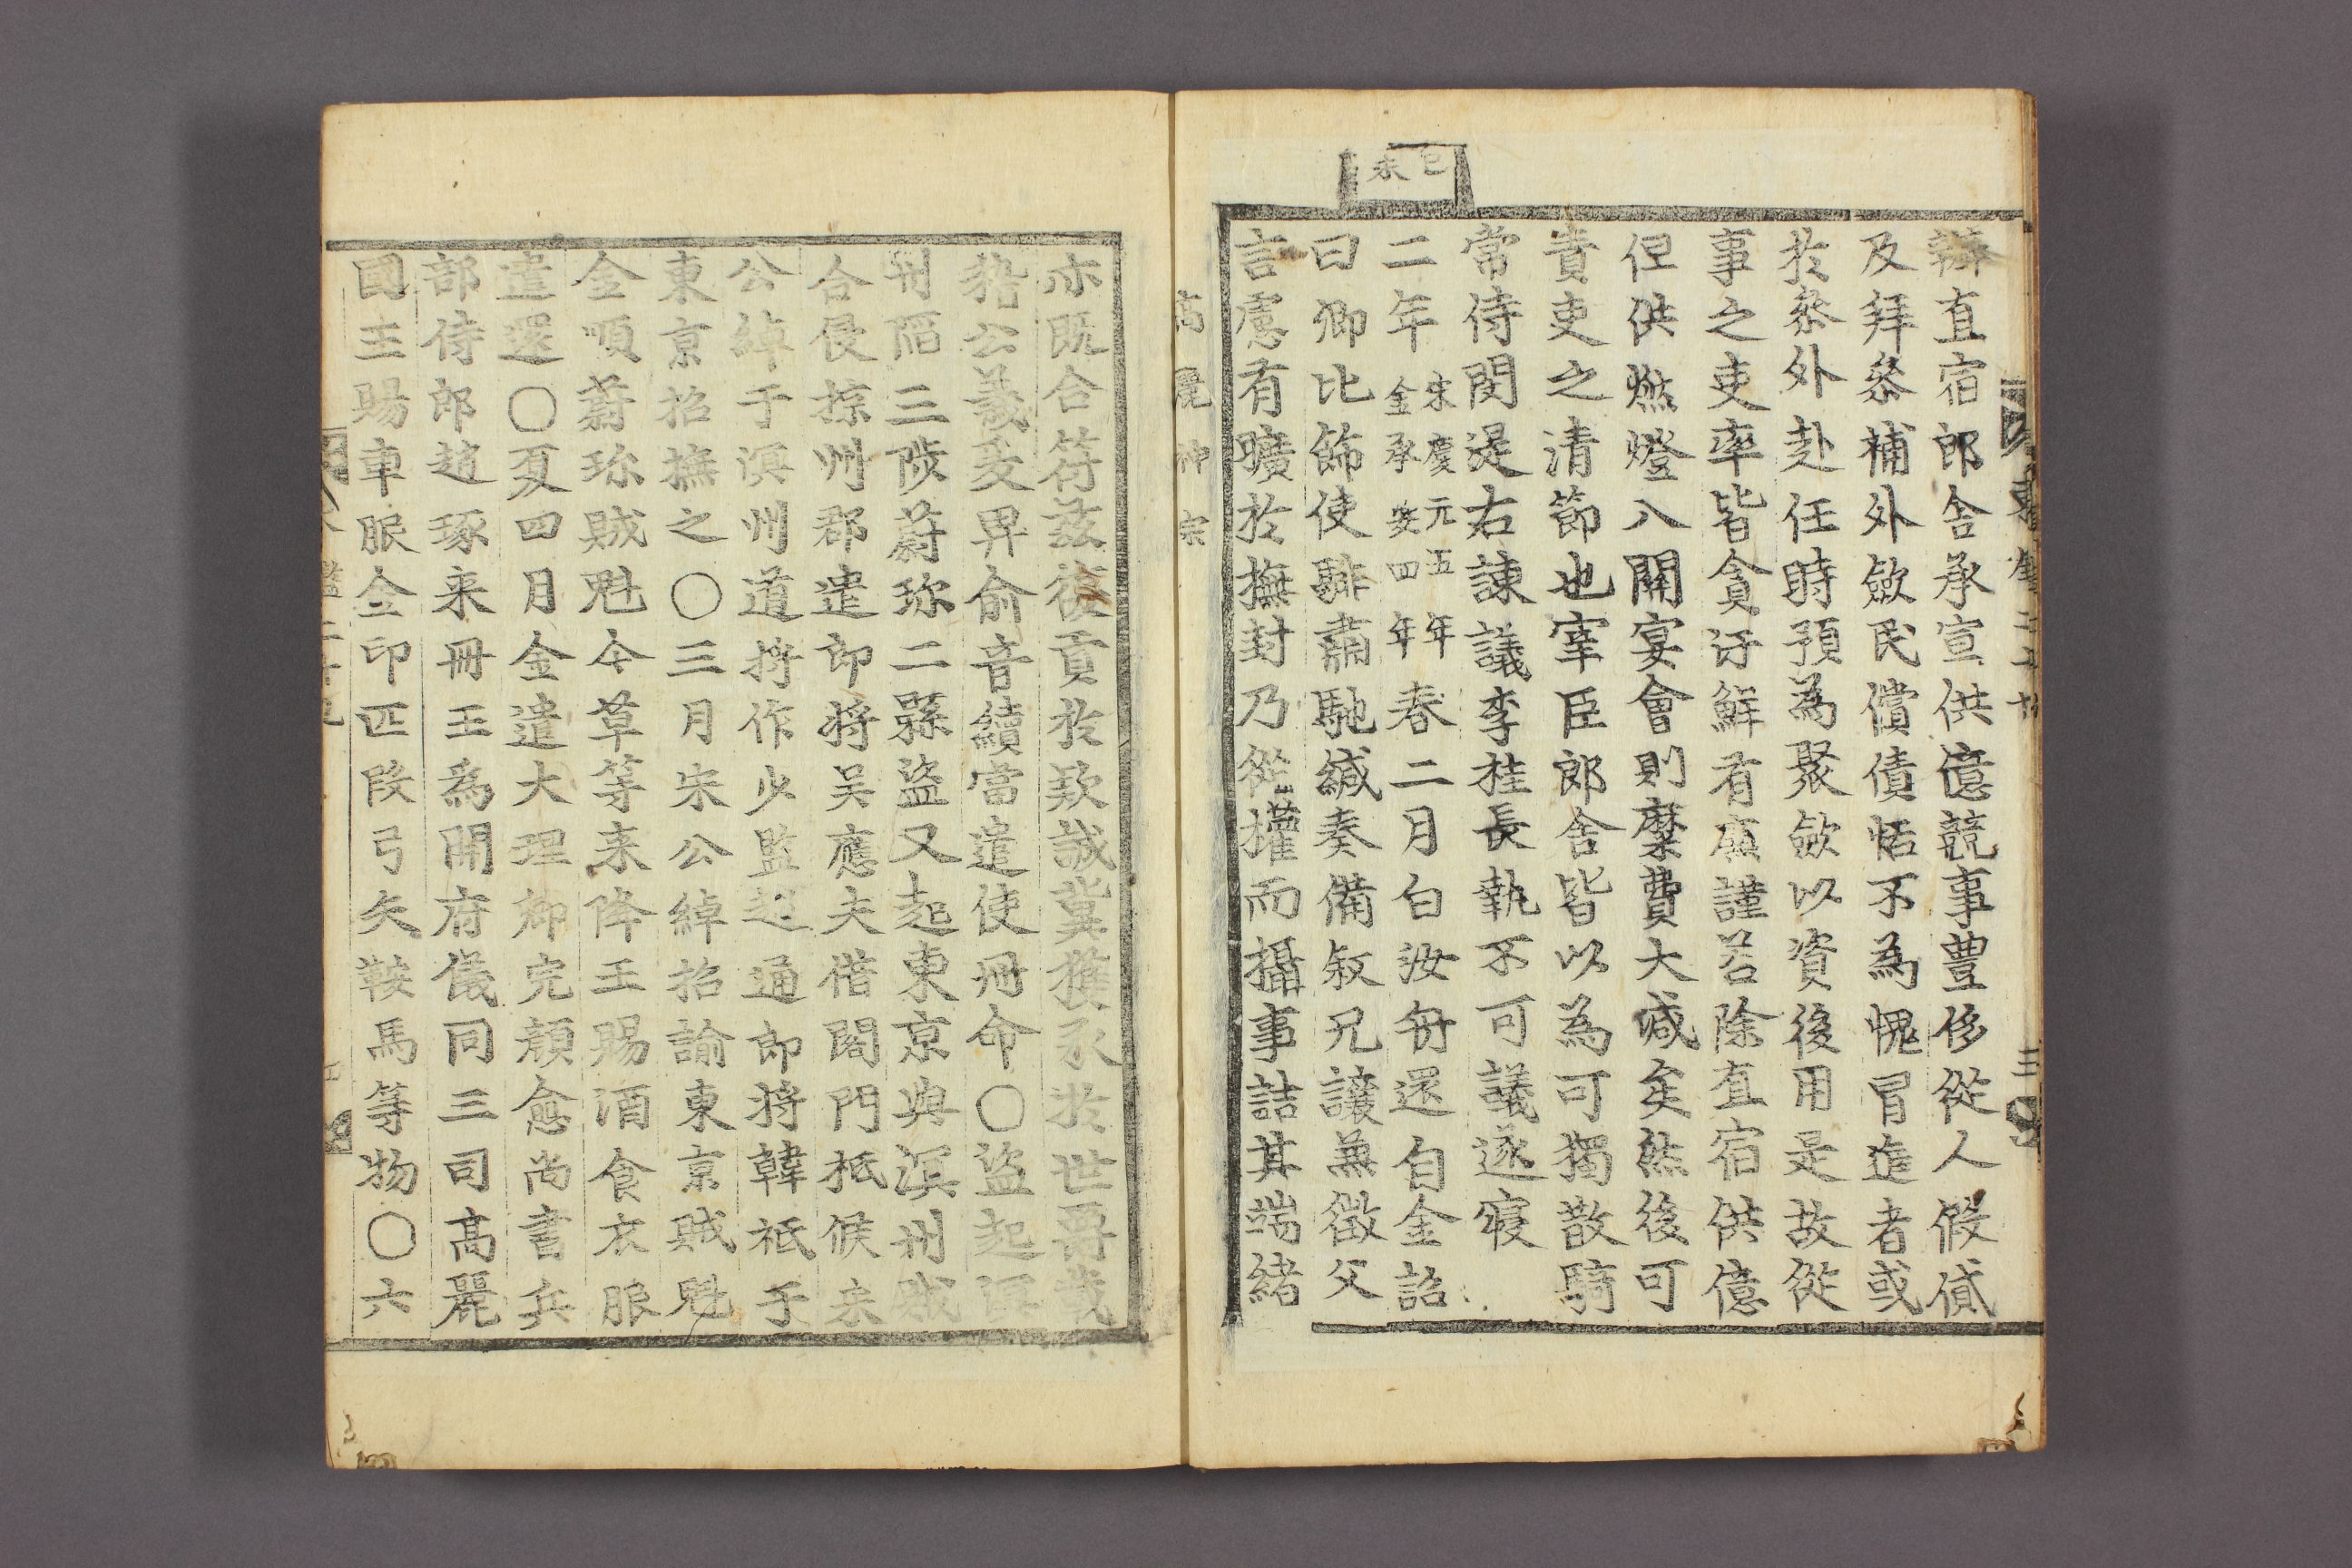 己未
辦直宿郎舎承宣供億競事豊侈從人假貸
及拜叅補外歛民償債恬不為愧冒進者或
於叅外赴任時預為聚歛以資後用是故從
事之吏率皆貪汙鮮有廉謹若除直宿供億
但供燃燈八關宴會則糜費大减矣然後可
責吏之清節也宰臣郎舎皆以為可獨散騎
常侍閔湜右諫議李桂長執不可議遂寢
二年宋慶元五年金承安四年春二月白汝舟還自金詔
曰卿比飾使騑肅馳緘奏備叙兄讓兼徵父
言慮有曠於撫封乃從權而攝事詰其端緒
高麗神宗
亦旣合符玆復貢於欵誠冀獲承於世爵載
稽公義爰畀俞音續當遣使冊命〇盜起溟
州陷三陟蔚珍二縣盜又起東京與溟州賊
合侵掠州郡遣郎將吴應夫借閤門祗候宋
公綽于溟州道將作少監趙通郎將韓祗于
東京招撫之〇三月宋公綽招諭東京賊魁
金順蔚珍賊魁今草等来降王賜酒食衣服
遣還〇夏四月金遣大理卿完顔愈尚書兵
部侍郎趙琢来冊王爲開府儀同三司高麗
國王賜車服金印匹段弓矢鞍馬等物〇六